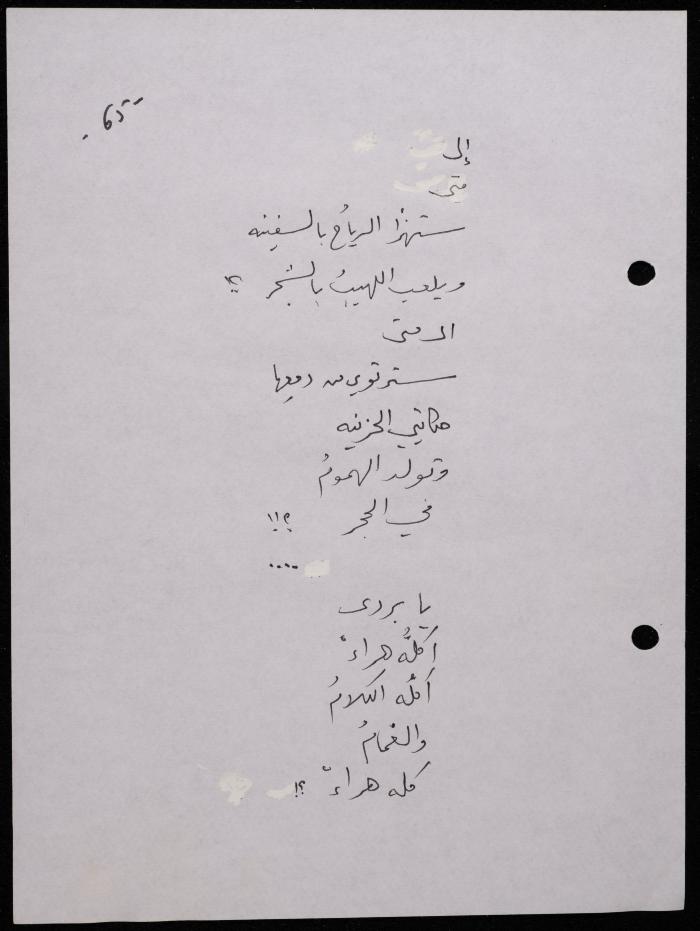 إلى
متى
ستهزأ الرياحُ بالسفينه
ويلعب اللهيبُ بالشجر ؟!
الى متى
سترتوي من دمعها
حكايتي الحزينه
وتولد الهمومُ
في الحجر ؟!!
....
يا بردى
أكلُّهُ هراءْ
أكلُّه الكلامُ
والغمامُ
كله هراءْ ؟!